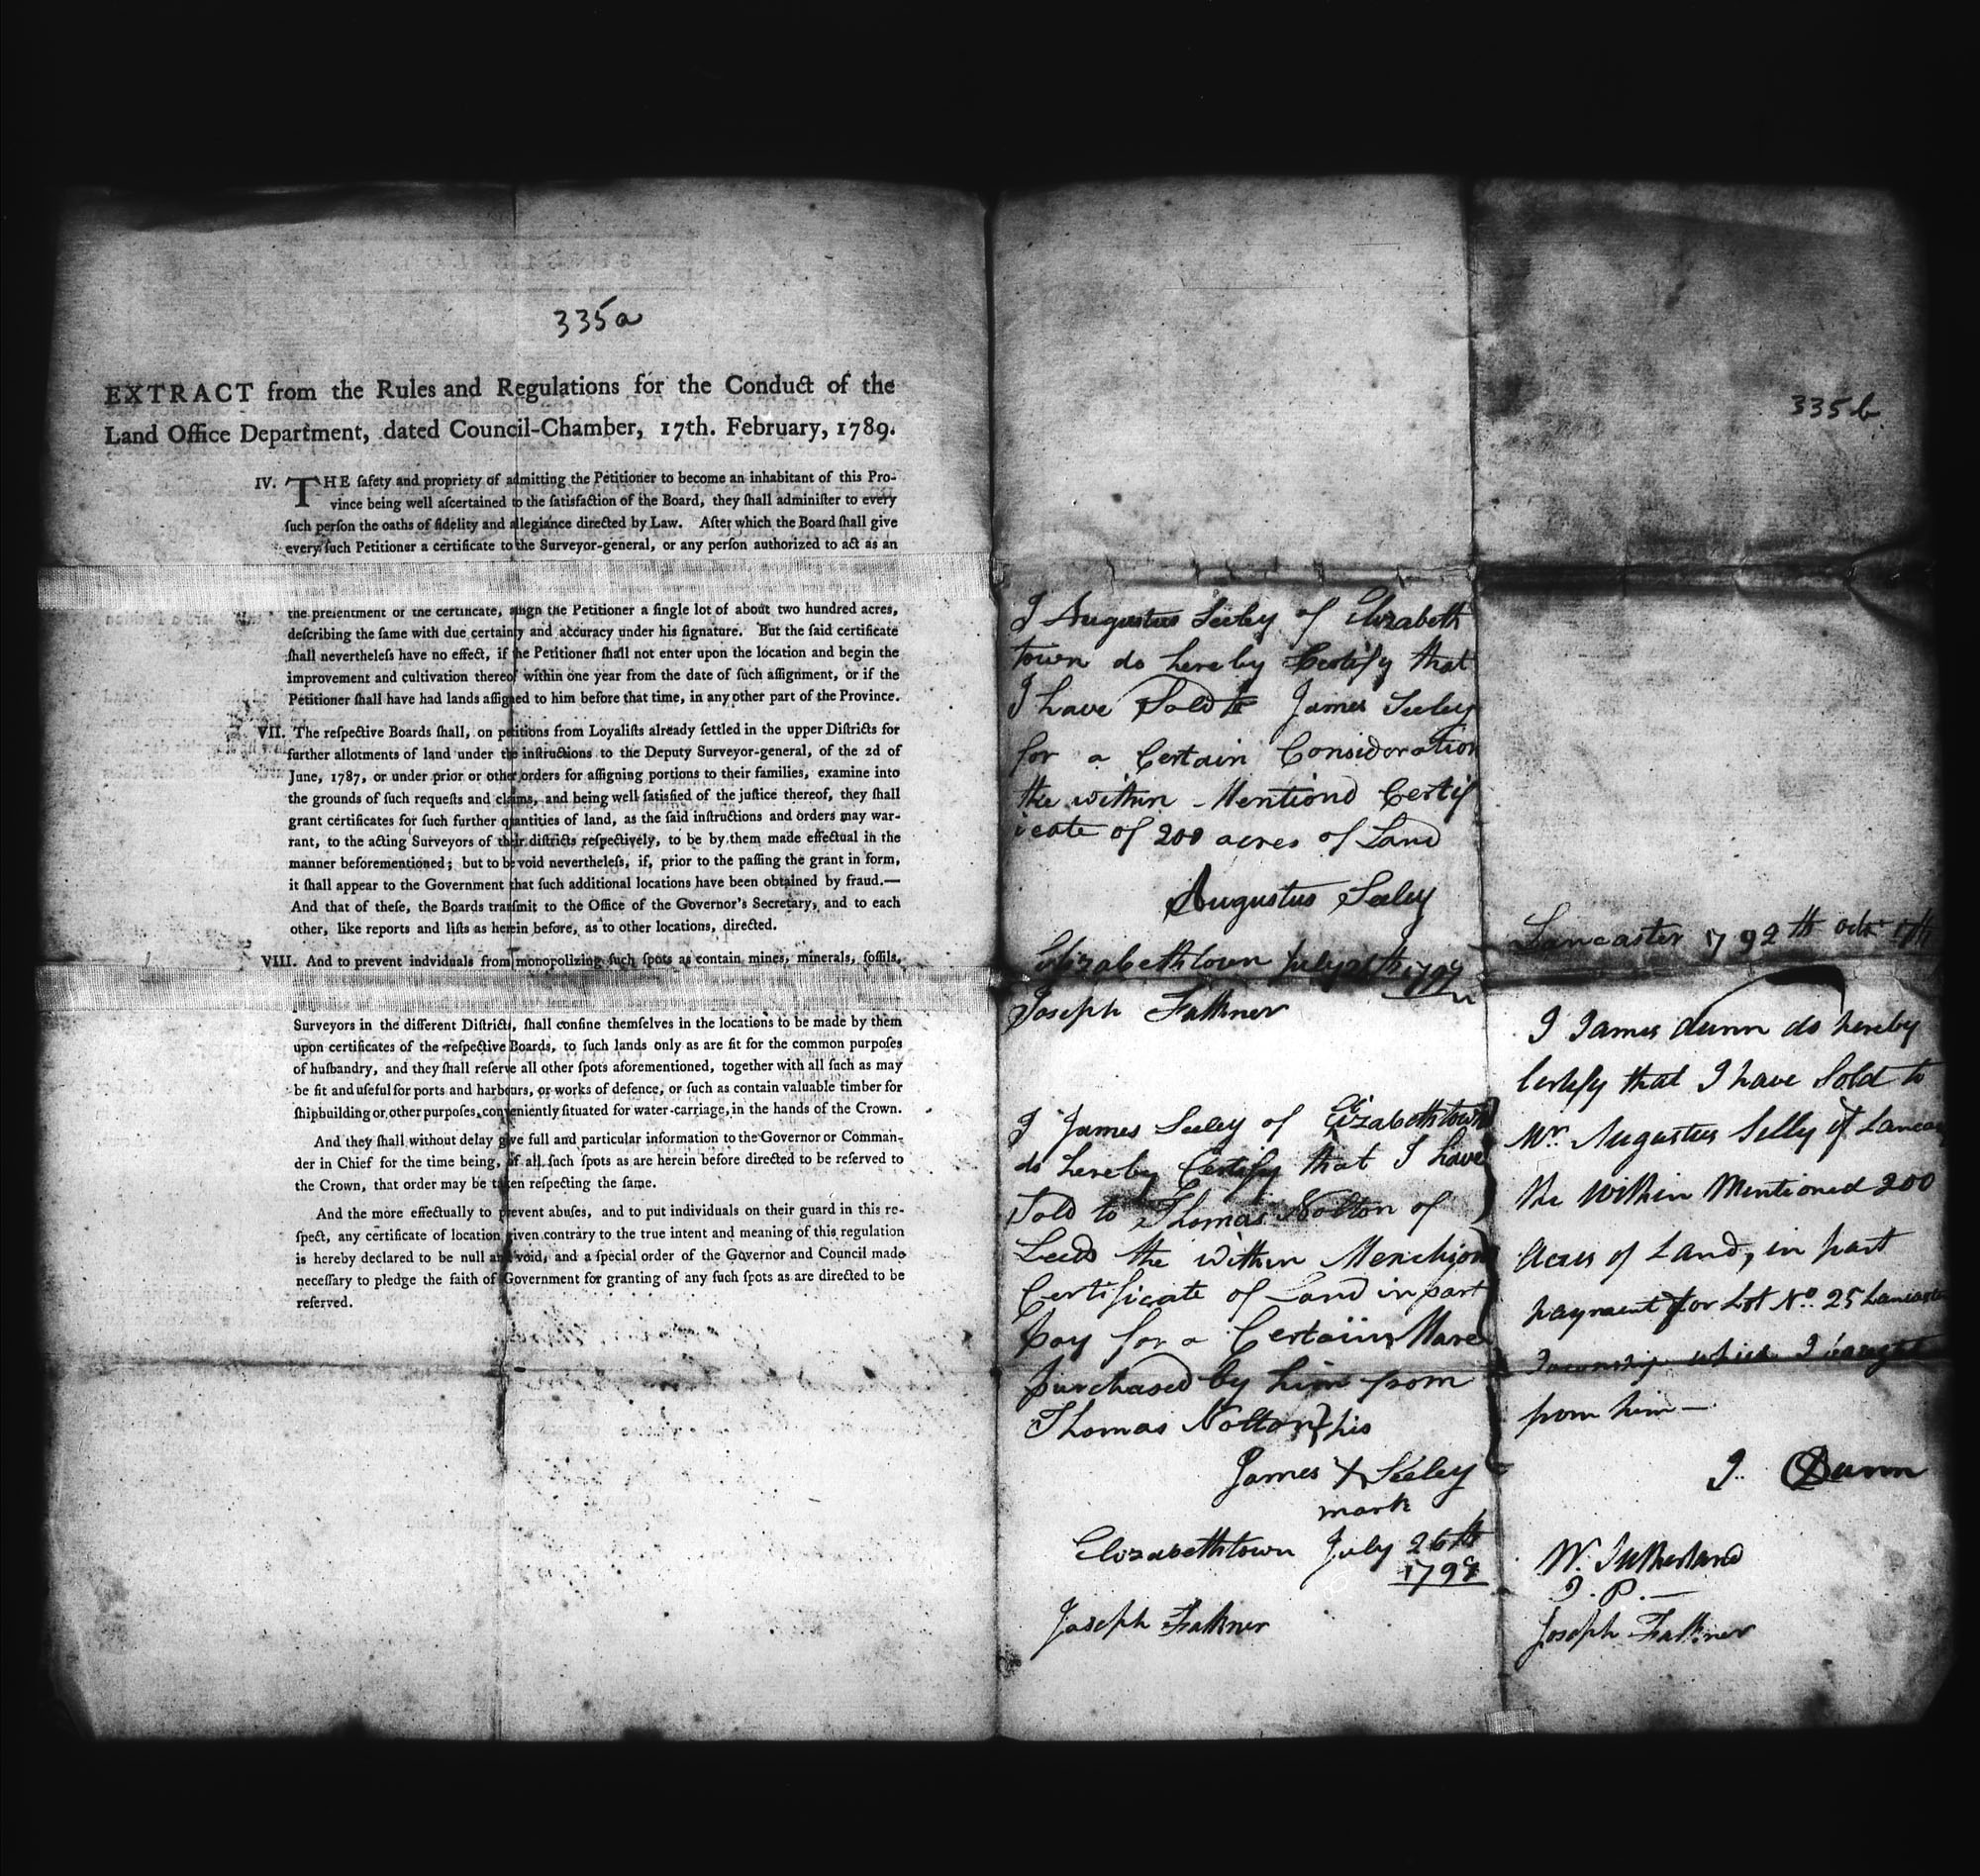 335a
EXTRACT from the Rules and Regulations for the Conduct of the
Land Office Department, dated Council-Chamber, 17th. February, 1789.
IV. THE ſafety and propriety of admitting the Petitioner to become an inhabitant of this Pro-
vince being well aſcertained to the ſatisfaction of the Board, they ſhall adminiſter to every
ſuch perſon the oaths of fidelity and allegiance directed by Law. After which the Board ſhall give
every ſuch Petitioner a certificate to the Surveyor-general, or any perſon authorized to act as an
the preſentment of the certificate, aſſign the Petitioner a ſingle lot of about two hundred acres,
deſcribing the ſame with due certainty and accuracy under his ſignature. But the ſaid certificate
ſhall nevertheleſs have no effect, if the Petitioner ſhall not enter upon the location and begin the
improvement and cultivation thereof within one year from the date of ſuch aſſignment, or if the
Petitioner ſhall have had lands aſſigned to him before that time, in any other part of the Province.
VII. The reſpective Boards ſhall, on petitions from Loyaliſts already ſettled in the upper Diſtricts for
further allotments of land under the inſtructions to the Deputy Surveyor-general, of the 2d of
June, 1787, or under prior or other orders for aſſigning portions to their families, examine into
the grounds of ſuch requeſts and claims, and being well ſatisfied of the juſtice thereof, they ſhall
grant certificates for ſuch further quantities of land, as the ſaid inſtructions and orders may war-
rant, to the acting Surveyors of their diſtricts reſpectively, to be by them made effectual in the
manner beforementioned; but to be void nevertheleſs, if, prior to the paſſing the grant in form,
it ſhall appear to the Government that ſuch additional locations have been obtained by fraud.—
And that of theſe, the Boards tranſmit to the Office of the Governor's Secretary, and to each
other, like reports and liſts as herein before, as to other locations, directed.
VIII. And to prevent indviduals from monopolizing ſuch ſpots as contain mines, minerals, foſſils,
Surveyors in the different Diſtricts, ſhall confine themſelves in the locations to be made by them
upon certificates of the reſpective Boards, to ſuch lands only as are fit for the common purpoſes
of huſbandry, and they ſhall reſerve all other ſpots aforementioned, together with all ſuch as may
be fit and uſeful for ports and harbours, or works of defence, or ſuch as contain valuable timber for
ſhipbuilding or other purpoſes, conveniently ſituated for water-carriage, in the hands of the Crown.
And they ſhall without delay give full and particular information to the Governor or Comman-
der in Chief for the time being, of all ſuch ſpots as are herein before directed to be reſerved to
the Crown, that order may be taken reſpecting the ſame.
And the more effectually to prevent abuſes, and to put individuals on their guard in this re-
ſpect, any certificate of location given contrary to the true intent and meaning of this regulation
is hereby declared to be null and void, and a ſpecial order of the Governor and Council made
neceſſary to pledge the faith of Government for granting of any ſuch ſpots as are directed to be
reſerved.
I Augustus Seeley of Elizabeth
town do hereby Certify that
I have Sold to James Seeley
for a Certain Consideration
the within Mentiond Certif
icate of 200 acres of Land
Augustus Seeley
Elizabethtown July 26th 1798
Joseph Falkner
I James Seeley of Elizabethtown
do hereby Certify that I have
Sold to Thomas Nolton of
Leeds the within Menchiond
Certificate of Land in part
pay for a Certain Mare
purchased by him from
Thomas Nolton his
James X Seeley
mark
Elizabethtown July 26th
1798
Joseph Falkner
335b.
Lancaster 1792th octr
I James dunn do hereby
Certify that I have Sold to
Mr. Augustus Selly of Lancas
the Within Mentioned 200
Acres of Land, in part
payment for Lot No. 25 Lancaster
Township which I bought
from him—
J. Dunn
W. Sutherland
J. P.—
Joseph Falkner